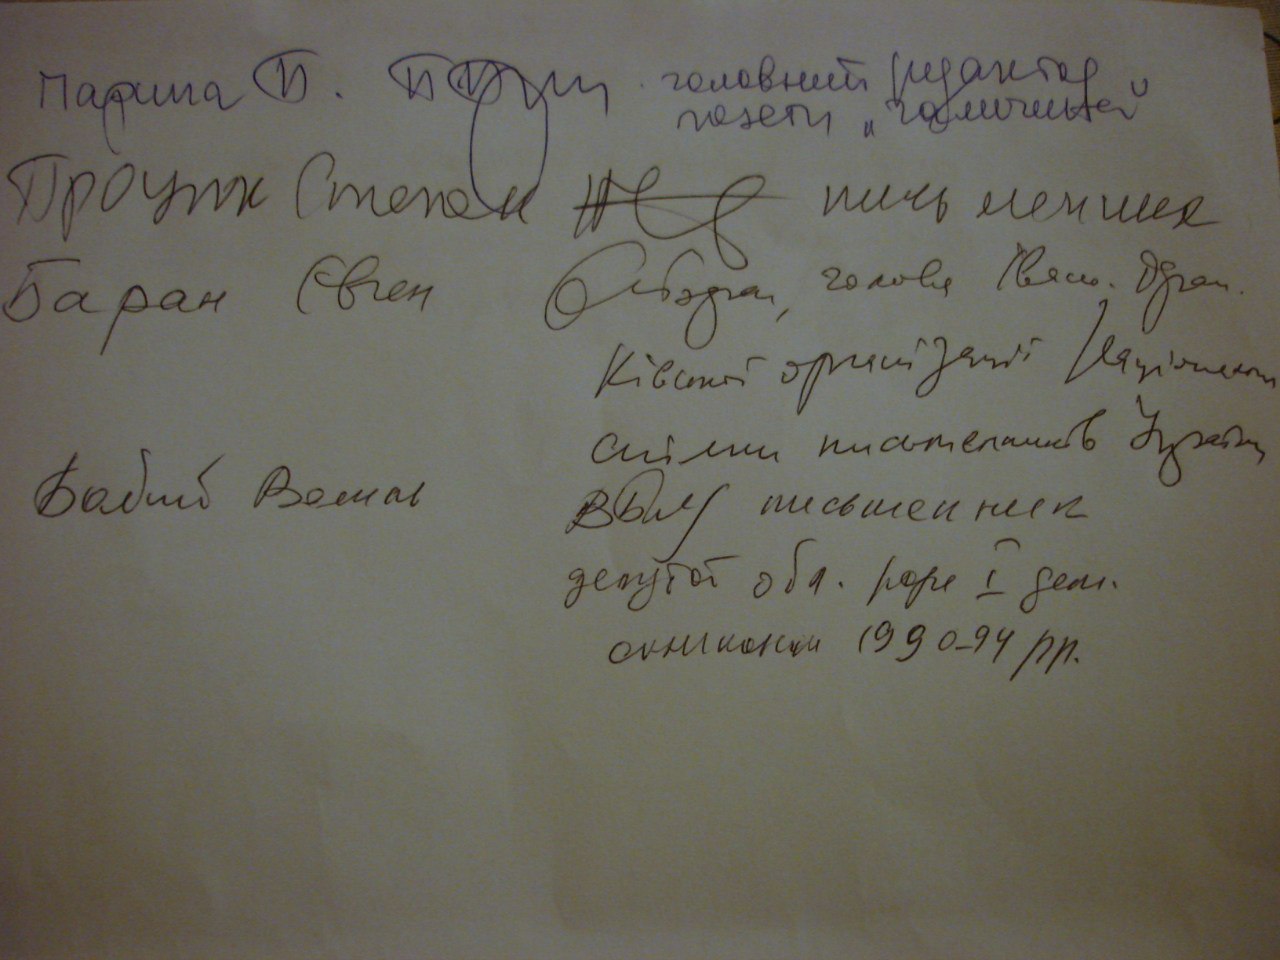 Парипа П. головний редактор
газети „Галичина"
Процюк Степан письменник
Баран Євген голова Івано-Фран.
ківської організації Національної
спілки письменників України
Бабій Василь письменник
депутат обл. ради I дем.
скликання 1990-94 рр.